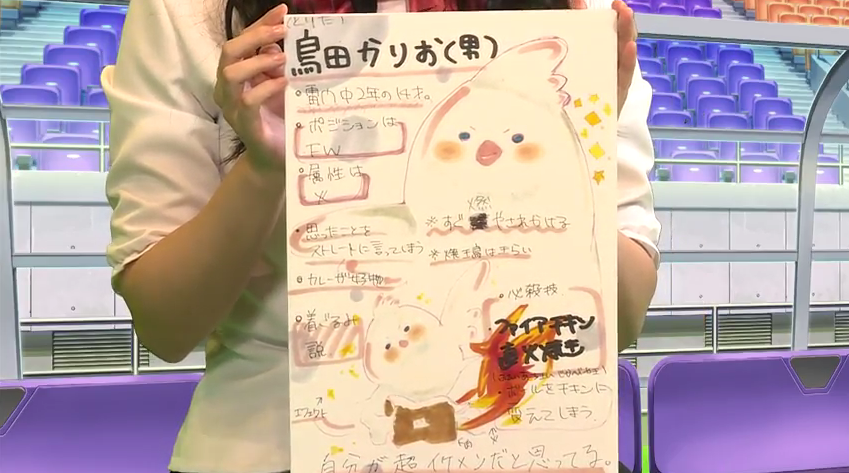 (とりた)
鳥田かりお(男)
・雷門中2年の14才。
・ポジションは
FW
・属性は
火
・思ったことを
ストレートに言ってしまう
・カレーが好物
・着ぐるみ
説
燃
※すぐやされかける
※焼き鳥はキライ
・必殺技
ファイアチキン
直火焼き
・ボールをチキンに
変えてしまう
エフェクト
自分が超イケメンだと思ってる。